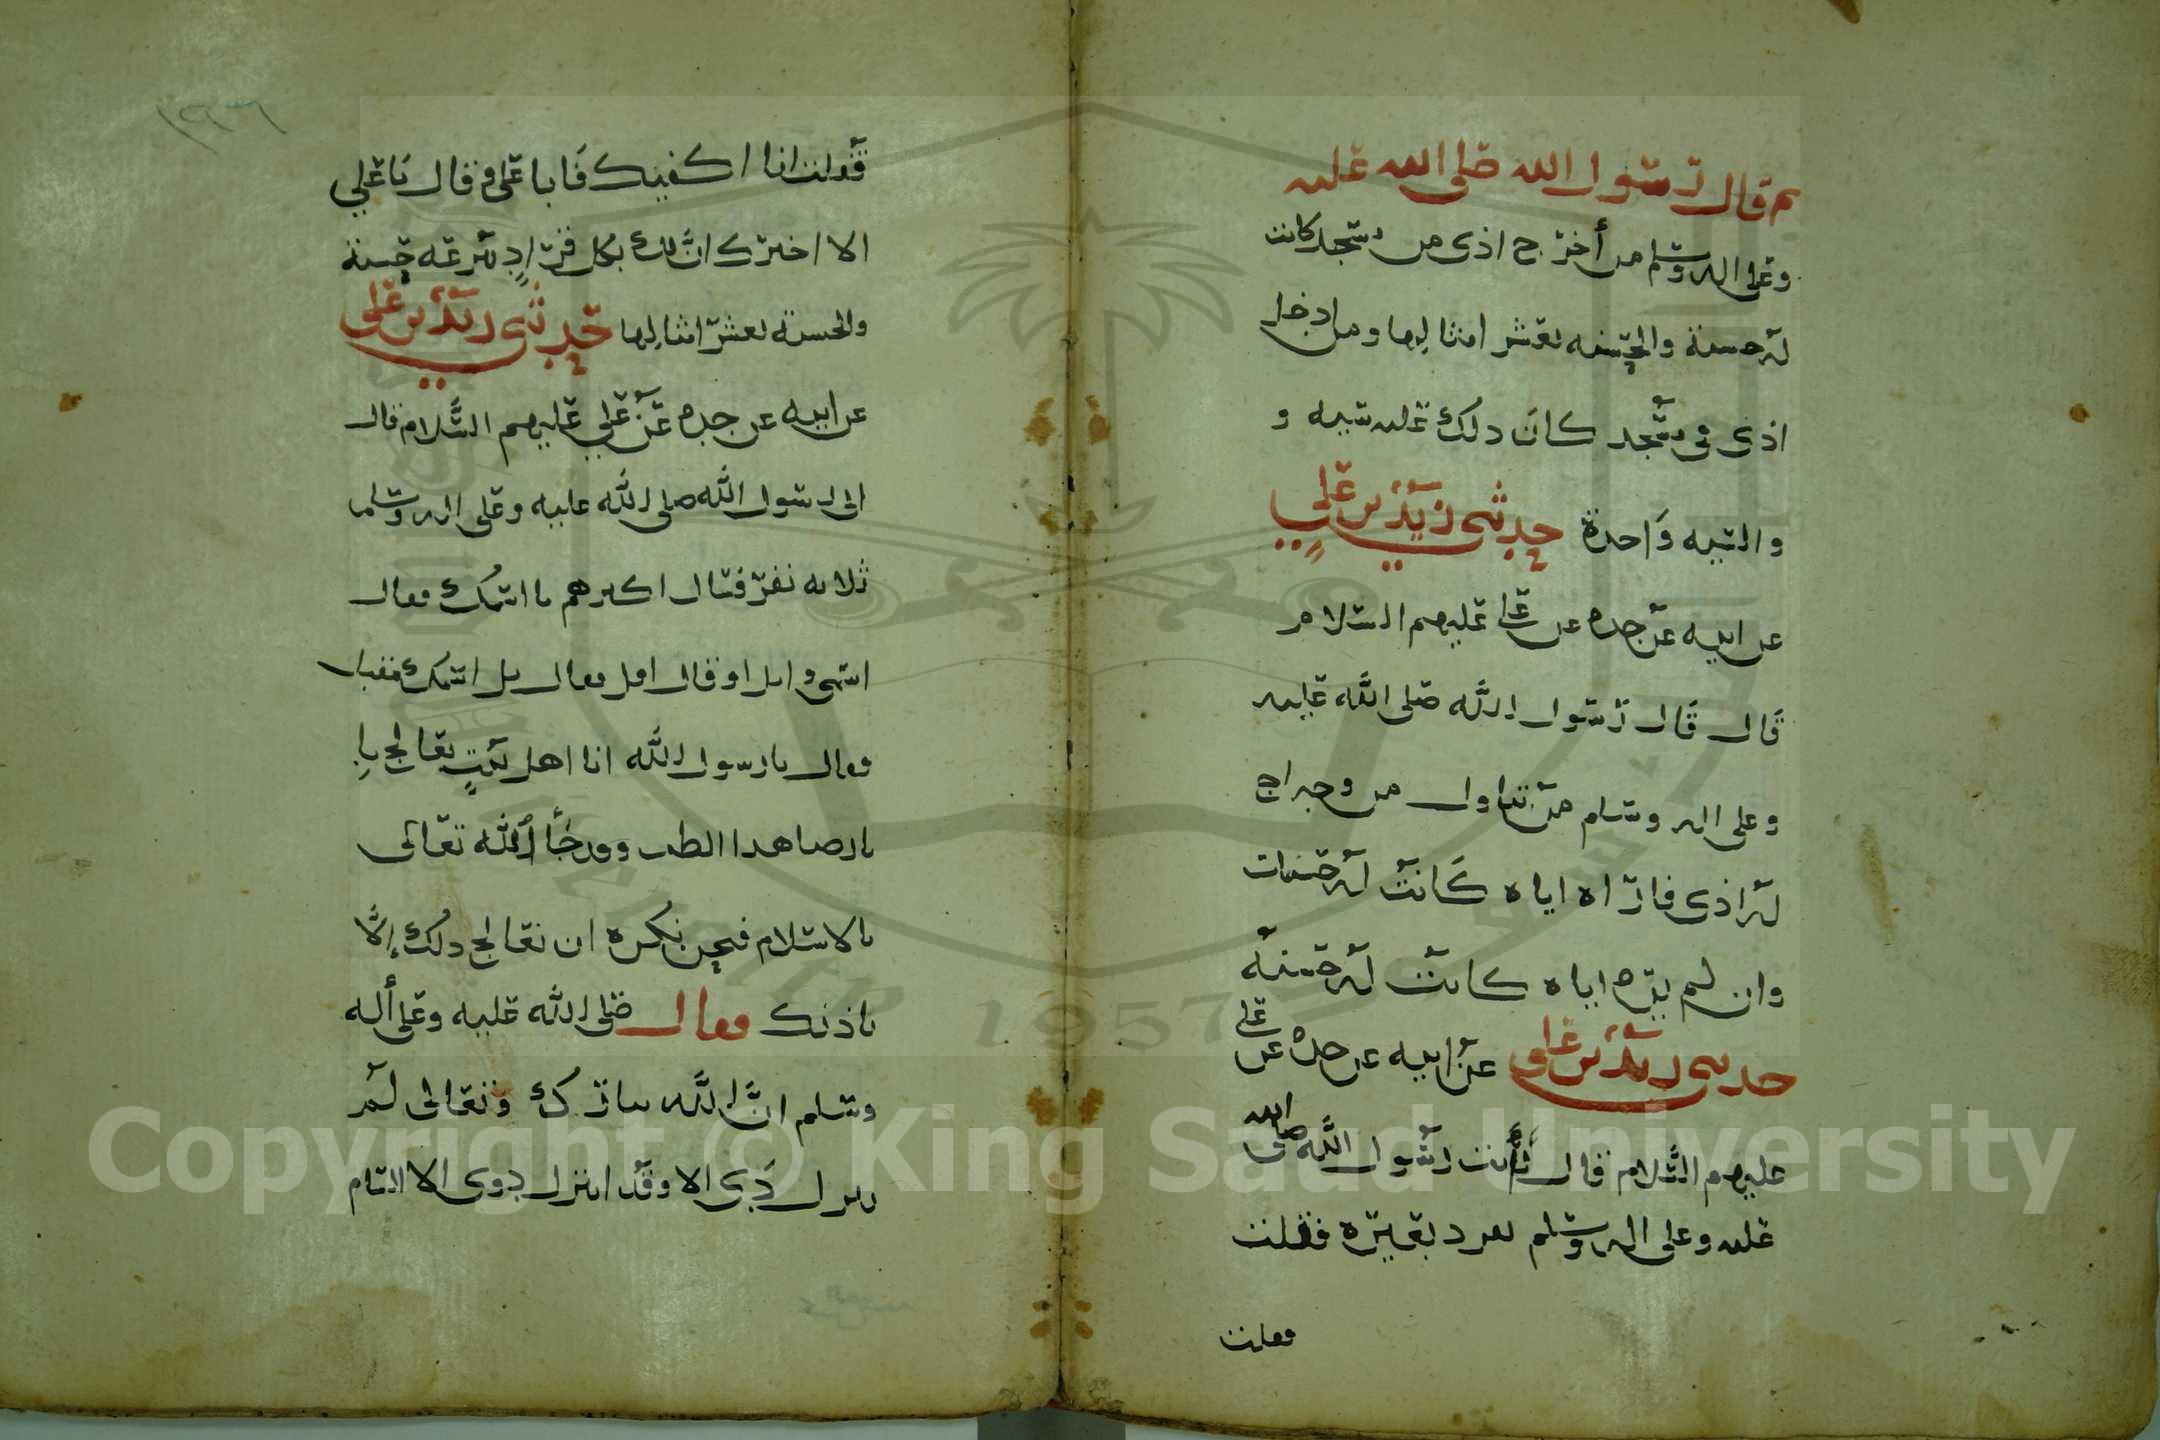 ثم قال رسول الله صلى الله عليه
وعلى اله وسلم من أخرج اذى من مسجد كانت
له حسنة والحسنه بعشر امثالها ومن ادخل
اذى في مسجد كان ذلك عليه سيه و
والسيه واحدة حدثني زيد بن علي
عن ابيه عن جده عن علي عليهم السلام
قال قال رسول الله صلى الله عليه
وعلى اله وسلم من تناول من وجه اخ
له اذى فاراه اياه كانت له حسنات
وان لم يره اياه كانت له حسنه
حدثني زيد بن علي عن ابيه عن جده عن علي
عليهم السلام قال رأيت رسول الله صلى الله
عليه وعلى اله وسلم بعيره فقلت
فقلت
١٩٦
انا اكفيك فابا علي وقال يا علي
الا اخبرك ان لك بكل قراد تنزعه حسنة
والحسنه بعشر امثالها حدثني زيد بن علي
عن ابيه عن جده عن علي عليهم السلام قال
اتى رسول الله صلى الله عليه وعلى اله وسلم
ثلاثه نفر فقال اكبرهم ما اسمك فقال
اسمي وايل او قال افل فقال بل اسمك مقبل
فقال يا رسول الله انا اهل بيت نعالج با
بارضنا هذا الطب وقد جا الله تعالى
بالاسلام فنحن نكره ان نعالج ذلك إلا
باذنك فقال صلى الله عليه وعلى أله
وسلم ان الله تبارك وتعالى لم
ينزل دى الا وقد انزل دوى الا السام
Copyright © King Saud University
1957